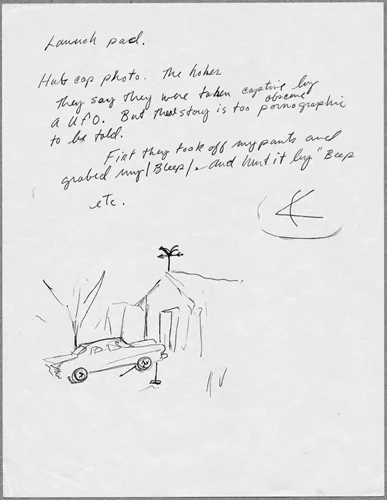 Launch pad.
Hub cap photo. The hoker
They say they were taken captive by
a UFO. But their story is too obscene pornographic
to be told.
First they took off my pants and
grabed my / Bleep / . And hurt it by "Beep
etc.
K